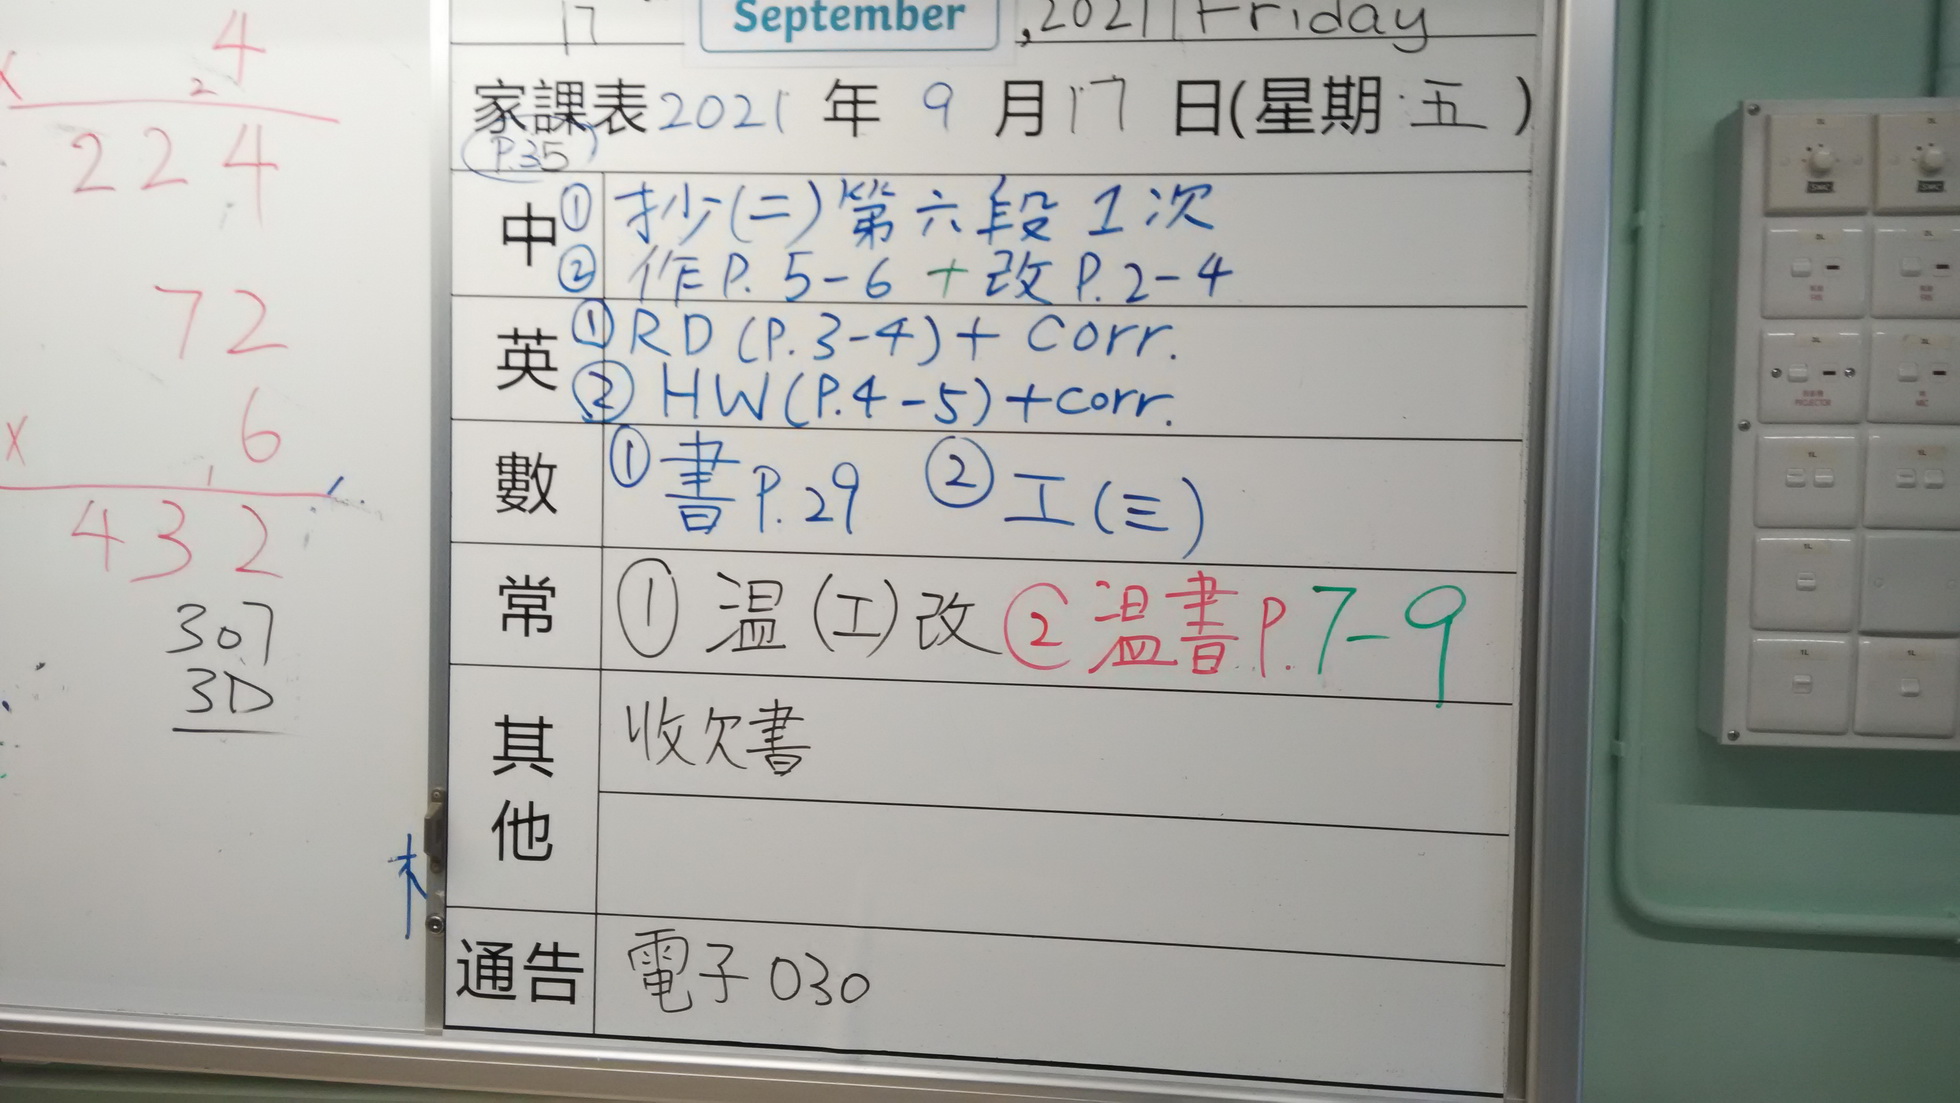 4
× 2
224
72
× 6
1
432
307
30
17 September ,2021 Friday
家課表 2021 年 9 月 17 日(星期 五 )
P.35
中 ① 抄(二)第六段1次
② 作P. 5-6 + 改P.2-4
英 ① RD (P.3-4)+ Corr.
② HW(P.4-5)+corr.
數 ① 書P.29 ② 工(三)
常 ① 温(工)改 ② 温書P.7-9
其他 收欠書
通告 電子030